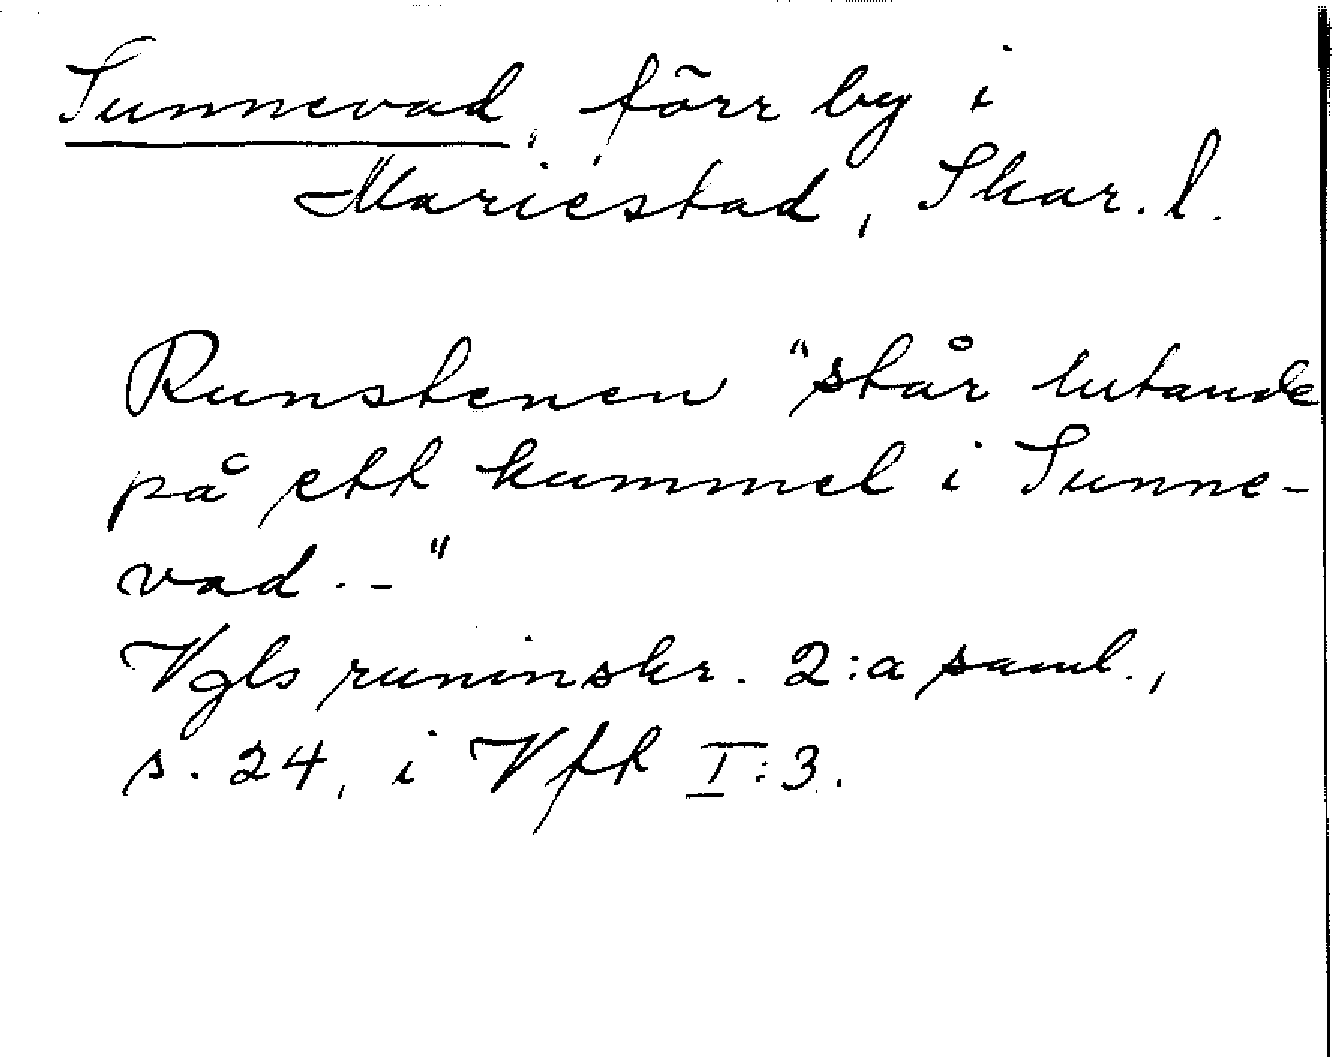 Sunnevad, förr by i
Mariestad, Skar. l.
Runstenen "står lutande
på ett kummel i Sunne-
vad. -"
Vgls runinskr. 2:a saml.,
s. 24, i Vft I:3.